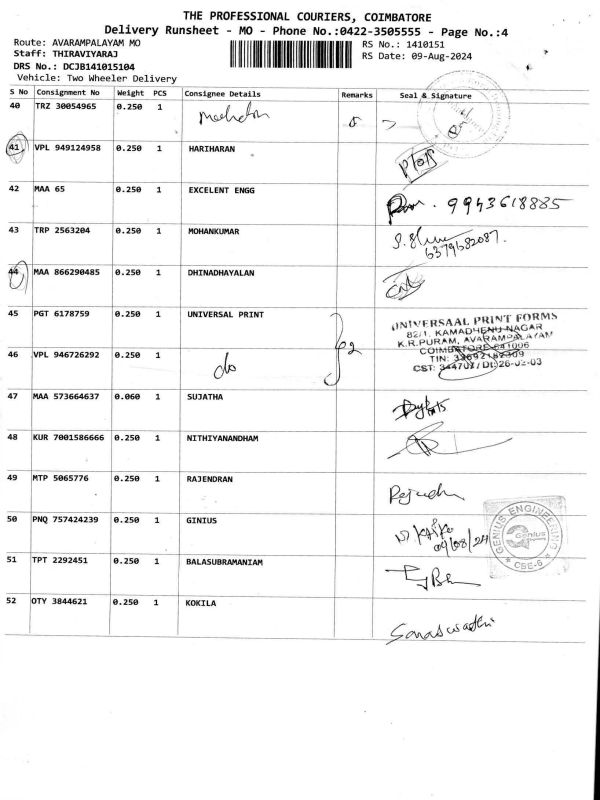 THE PROFESSIONAL COURIERS, COIMBATORE
Delivery Runsheet - MO - Phone No.:0422-3505555 - Page No.:4
Route: AVARAMPALAYAM MO RS No.: 1410151
Staff: THIRAVIYARAJ RS Date: 09-Aug-2024
DRS No.: DCJB141015104
Vehicle: Two Wheeler Delivery
S No Consignment No Weight PCS Consignee Details Remarks Seal & Signature
40 TRZ 30054965 0.250 1
41 VPL 949124958 0.250 1 HARIHARAN
42 MAA 65 0.250 1 EXCELENT ENGG 9943618885
43 TRP 2563204 0.250 1 MOHANKUMAR
6379682087.
44 MAA 866290485 0.250 1 DHINADHAYALAN
45 PGT 6178759 0.250 1 UNIVERSAL PRINT
UNIVERSAAL PRINT FORMS
82/1, KAMADHENU NAGAR
K.R.PURAM, AVARAMPALAYAM
COIMBATORE 641006
46 VPL 946726292 0.250 1 do
47 MAA 573664637 0.060 1 SUJATHA
48 KUR 7001586666 0.250 1 NITHIYANANDHAM
49 MTP 5065776 0.250 1 RAJENDRAN
50 PNQ 757424239 0.250 1 GINIUS
09/08/24
GENIUS ENGINEERING
Genius
CBE-6
51 TPT 2292451 0.250 1 BALASUBRAMANIAM
52 OTY 3844621 0.250 1 KOKILA
Saraswathi